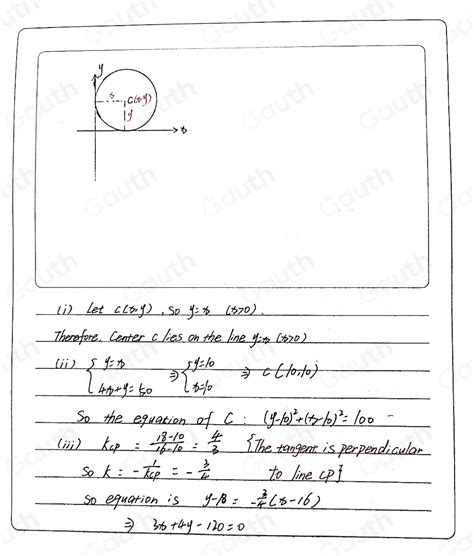 y
x C(x,y)
y
x
(i) Let C(x,y), so y=x (x>0).
Therefore, Center C lies on the line y=x (x>0)
(ii) { y=x ⇒ { y=10 ⇒ C(10,10)
4x+y=50 x=10
So the equation of C: (y-10)²+(x-10)²=100
(iii) k_CP = (18-10)/(16-10) = 4/3 {The tangent is perpendicular
So k = -1/k_CP = -3/4 to line CP}
So equation is y-18 = -3/4(x-16)
⇒ 3x+4y-120=0
Gauth